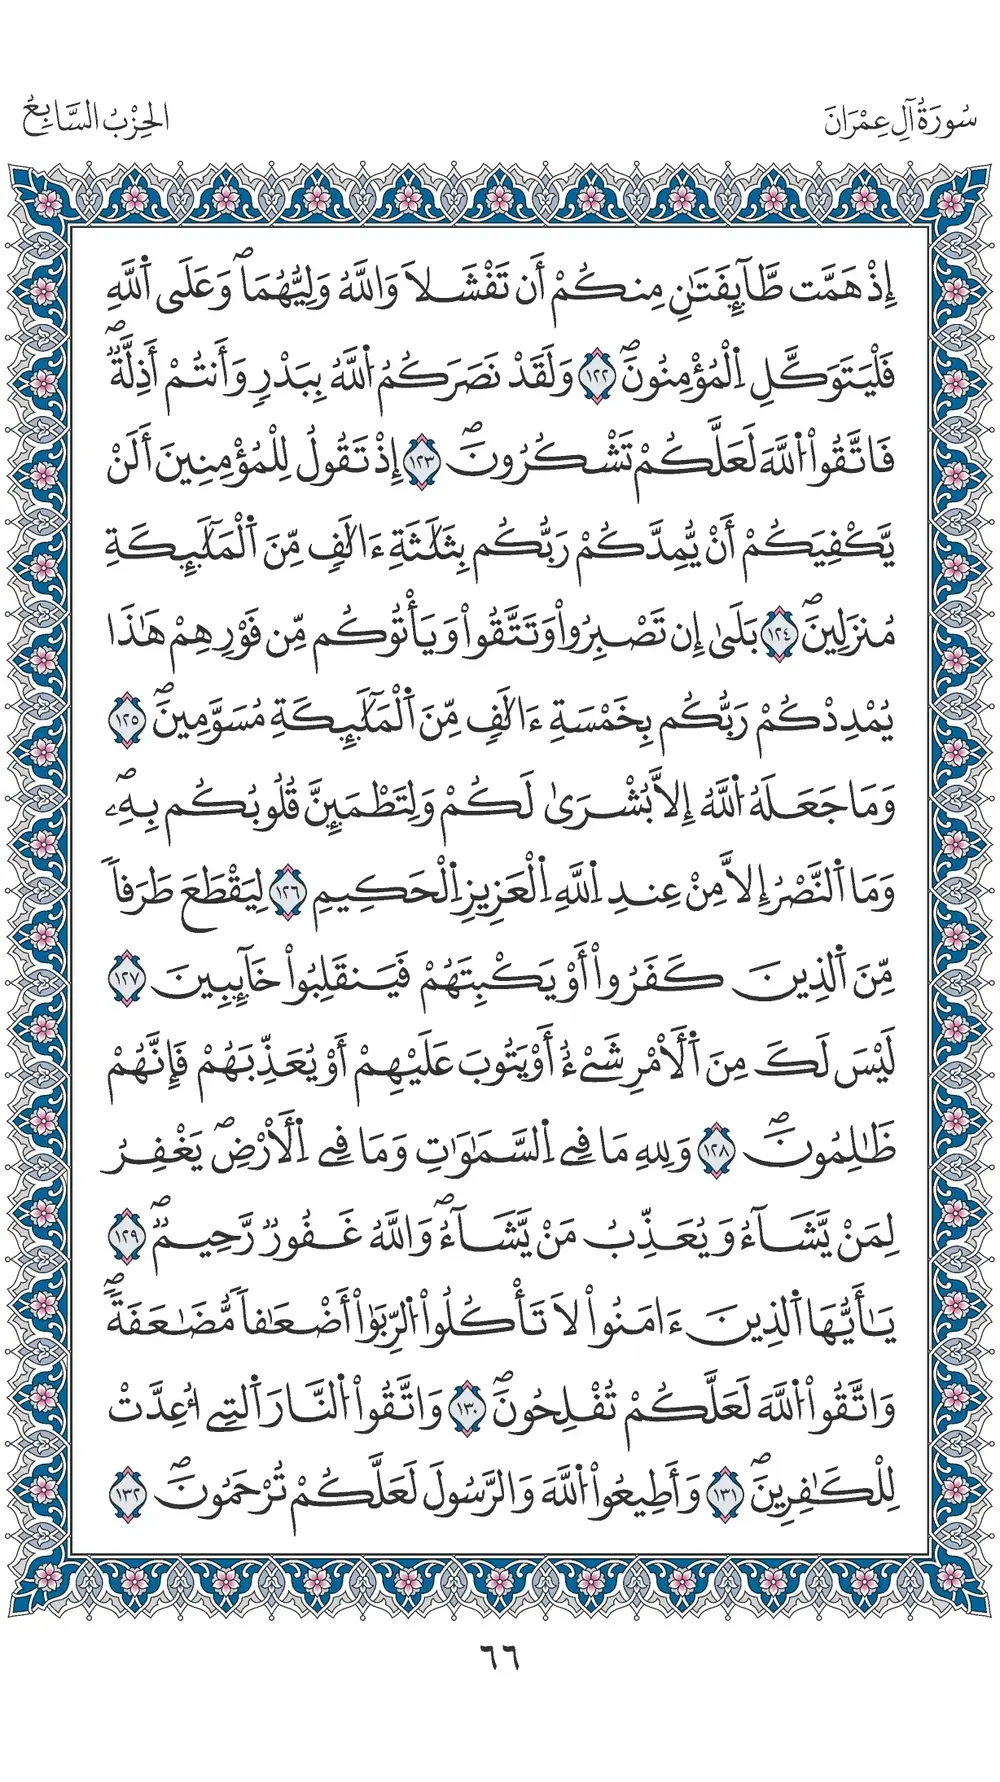 سُورَةُ آلِ عِمْرَانَ
الحِزْبُ السَّابِعُ
إِذْ هَمَّت طَّآئِفَتَٰنِ مِنكُمْ أَن تَفْشَلَا وَاللَّهُ وَلِيُّهُمَاۖ وَعَلَى اَ۬للَّهِ
فَلْيَتَوَكَّلِ اِ۬لْمُؤْمِنُونَۖ ١٢٢ وَلَقَدْ نَصَرَكُمُ اُ۬للَّهُ بِبَدْرٍ وَأَنتُمْ أَذِلَّةٌۖ
فَاتَّقُواْ اُ۬للَّهَ لَعَلَّكُمْ تَشْكُرُونَۖ ١٢٣ إِذْ تَقُولُ لِلْمُؤْمِنِينَ أَلَنْ
يَّكْفِيَكُمْ أَنْ يُّمِدَّكُمْ رَبُّكُم بِثَلَٰثَةِ ءَالَٰفٍ مِّنَ اَ۬لْمَلَٰٓئِكَةِ
مُنزَلِينَۖ ١٢٤ بَلَىٰ إِن تَصْبِرُواْ وَتَتَّقُواْ وَيَأْتُوكُم مِّن فَوْرِهِمْ هَٰذَا
يُمْدِدْكُمْ رَبُّكُم بِخَمْسَةِ ءَالَٰفٍ مِّنَ اَ۬لْمَلَٰٓئِكَةِ مُسَوَّمِينَۖ ١٢٥
وَمَا جَعَلَهُ اُ۬للَّهُ إِلَّا بُشْرَىٰ لَكُمْ وَلِتَطْمَئِنَّ قُلُوبُكُم بِهِۦۖ
وَمَا اَ۬لنَّصْرُ إِلَّا مِنْ عِندِ اِ۬للَّهِ اِ۬لْعَزِيزِ اِ۬لْحَكِيمِ ١٢٦ لِيَقْطَعَ طَرَفاً
مِّنَ اَ۬لذِينَ كَفَرُواْ أَوْ يَكْبِتَهُمْ فَيَنقَلِبُواْ خَآئِبِينَ ١٢٧
لَيْسَ لَكَ مِنَ اَ۬لْأَمْرِ شَےْءٌ أَوْ يَتُوبَ عَلَيْهِمْ أَوْ يُعَذِّبَهُمْ فَإِنَّهُمْ
ظَٰلِمُونَۖ ١٢٨ وَلِلهِ مَا فِے اِ۬لسَّمَٰوَٰتِ وَمَا فِے اِ۬لْأَرْضِۖ يَغْفِرُ
لِمَنْ يَّشَآءُ وَيُعَذِّبُ مَنْ يَّشَآءُۖ وَاللَّهُ غَفُورٌ رَّحِيمٌۖ ١٢٩
يَٰأَيُّهَا اَ۬لذِينَ ءَامَنُواْ لَا تَأْكُلُواْ اُ۬لرِّبَوٰٓاْ أَضْعَٰفاً مُّضَٰعَفَةًۖ
وَاتَّقُواْ اُ۬للَّهَ لَعَلَّكُمْ تُفْلِحُونَۖ ١٣٠ وَاتَّقُواْ اُ۬لنَّارَ اَ۬لتِے أُعِدَّتْ
لِلْكَٰفِرِينَۖ ١٣١ وَأَطِيعُواْ اُ۬للَّهَ وَالرَّسُولَ لَعَلَّكُمْ تُرْحَمُونَۖ ١٣٢
٦٦